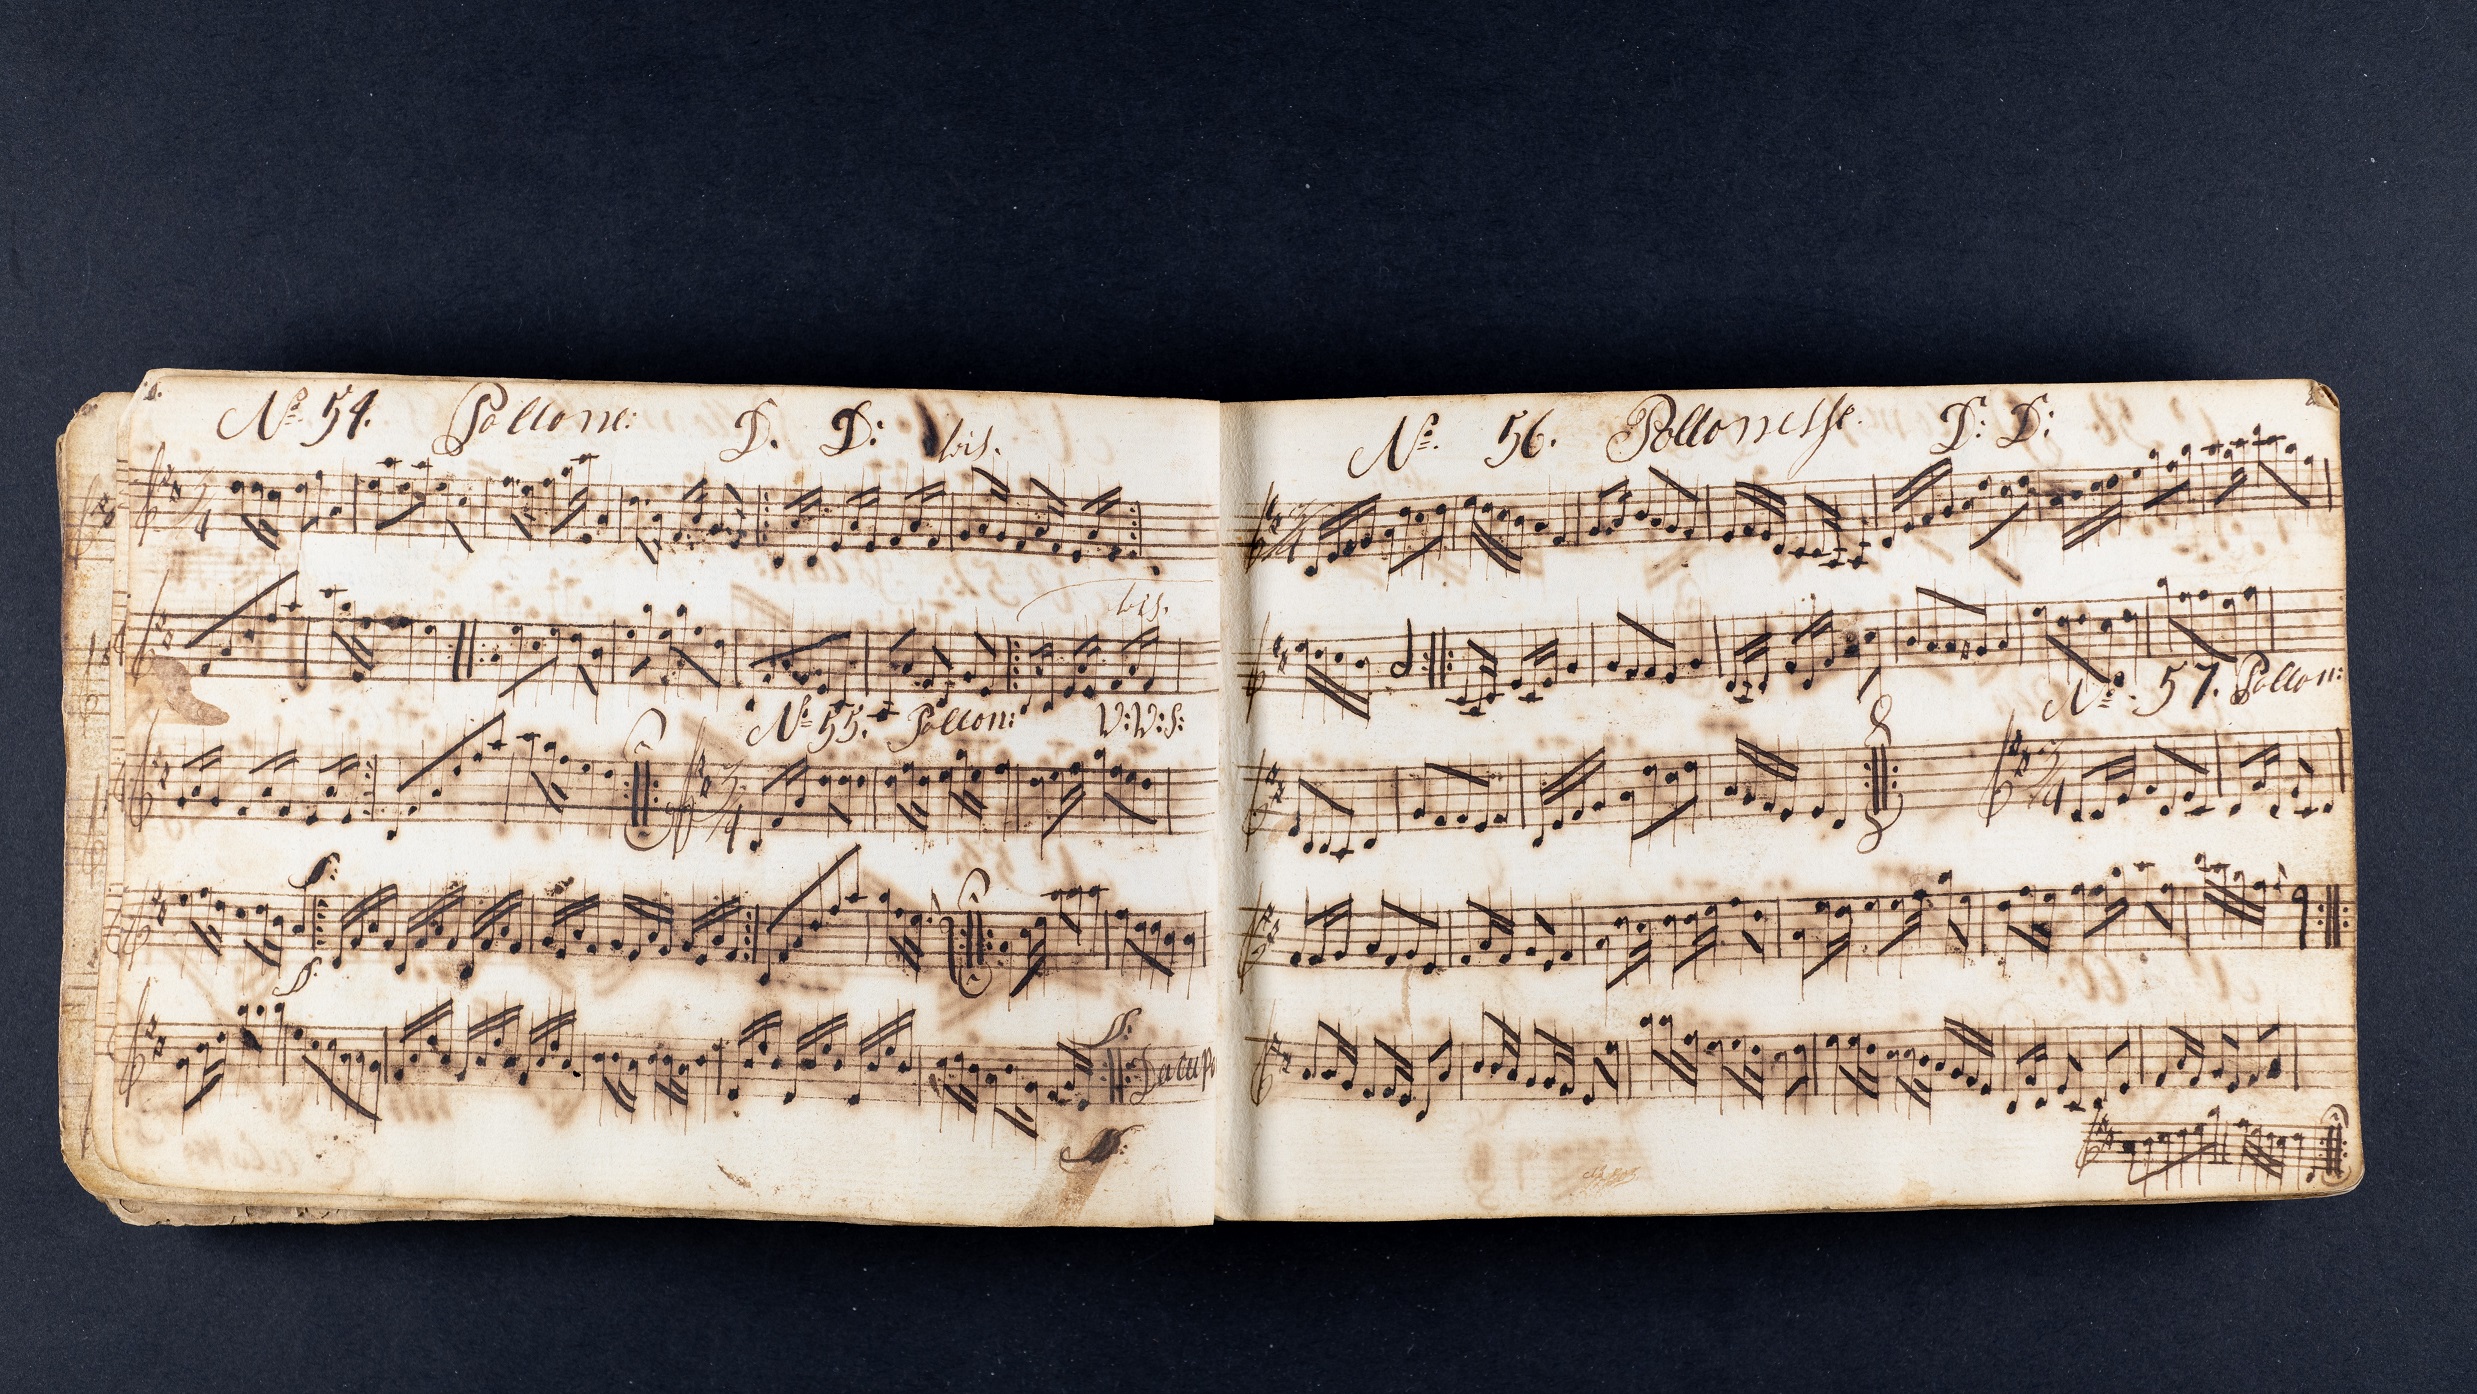 No. 54. Pollone: D. D: bis.
3/4
bis.
No. 55. Pollon: V:W:S:
3/4
Da capo
No. 56. Pollonesse. D: D:
3/4
No. 57. Pollon:
3/4